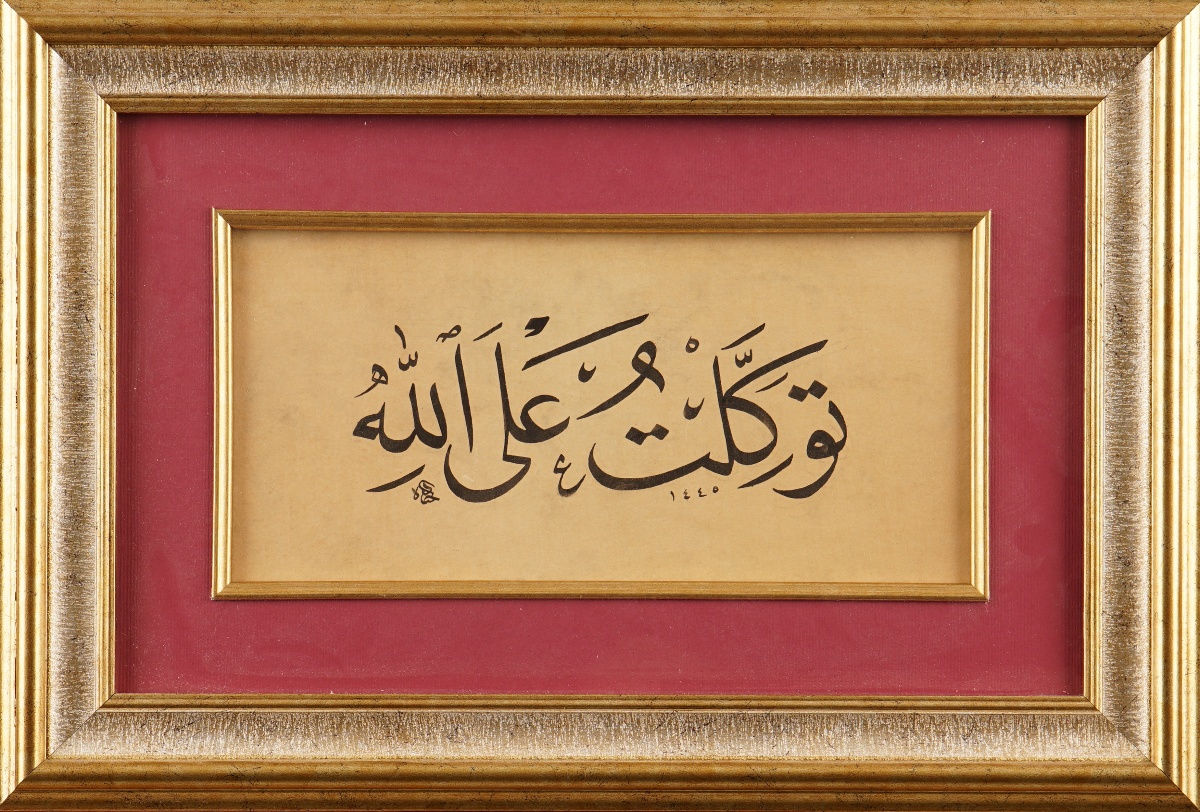 توكَّلْتُ عَلَى ٱللّٰهِ
١٤٤٥